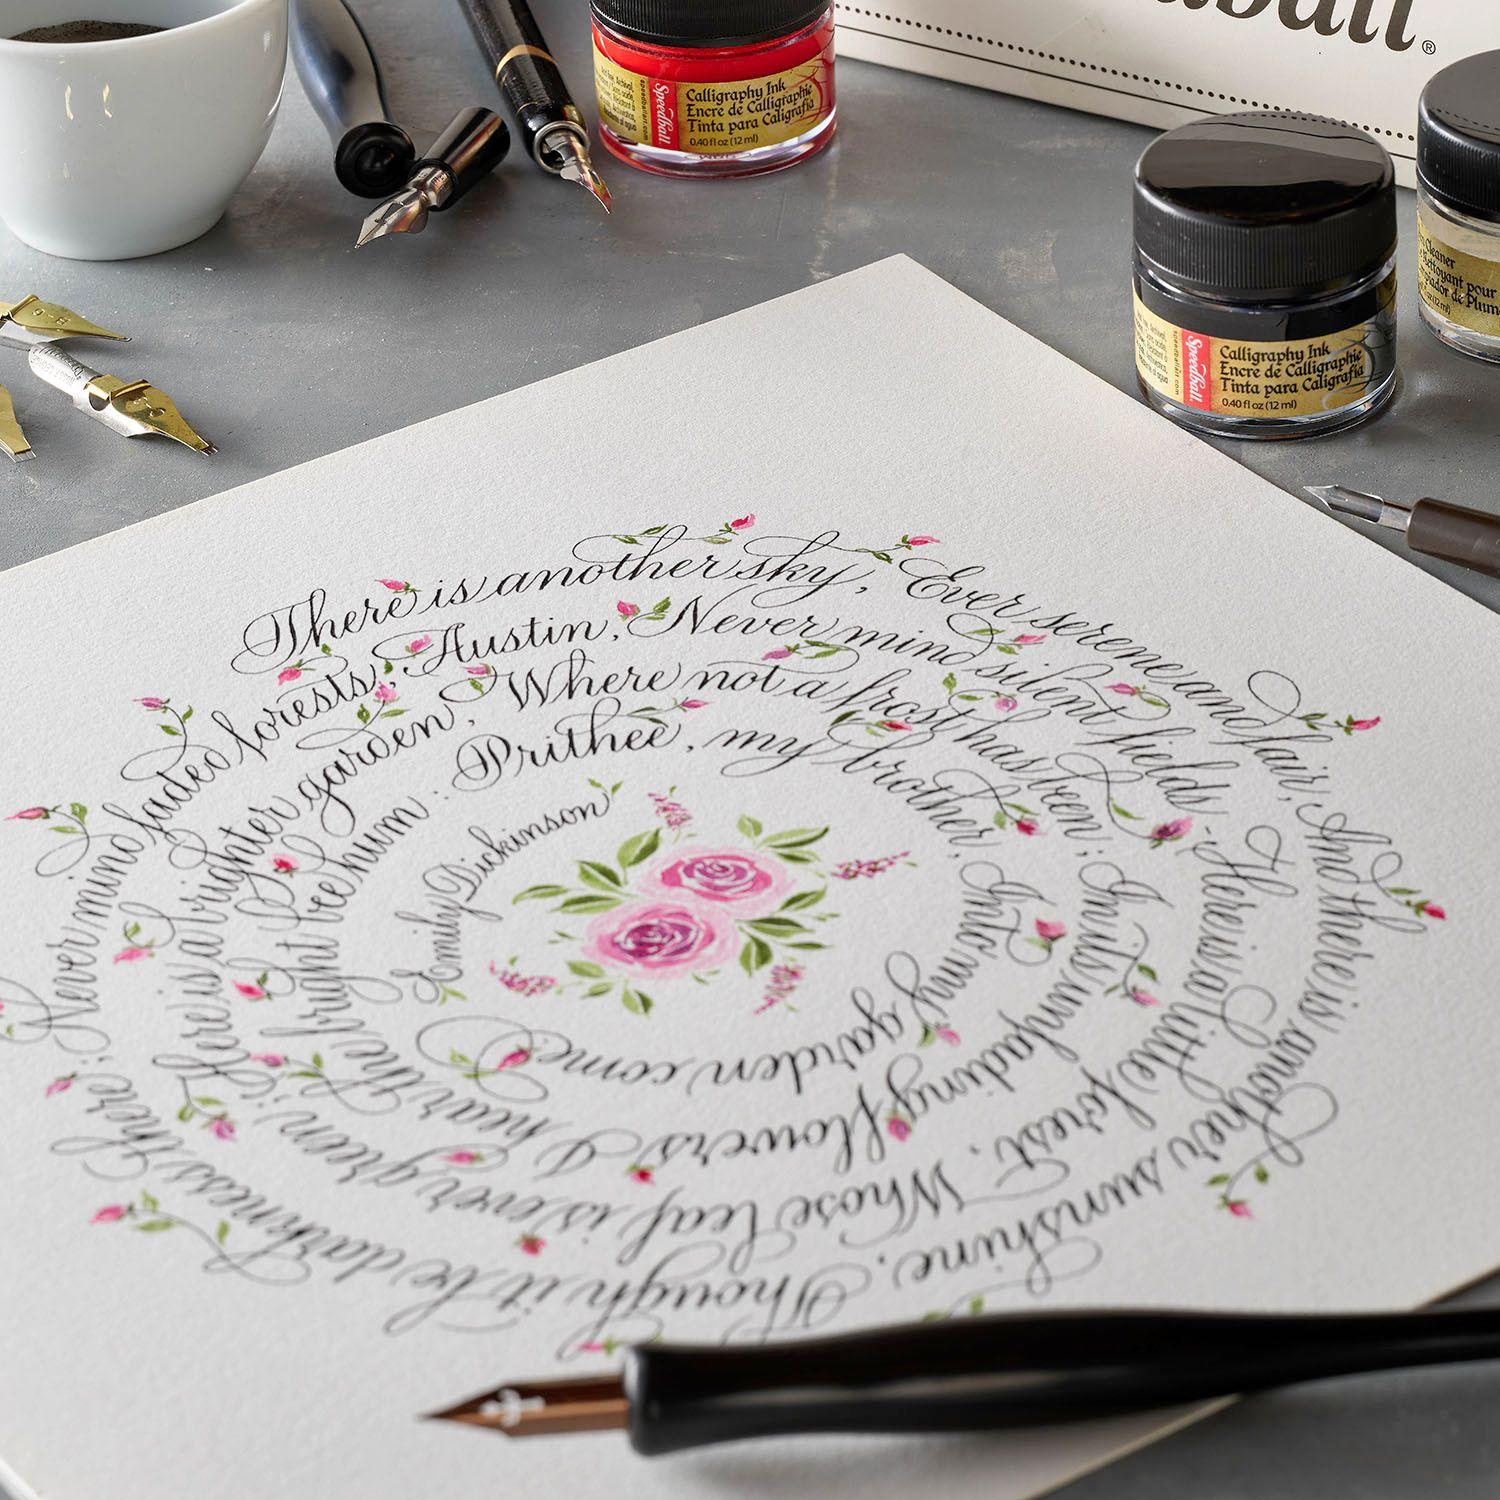 aball®
Speedball.
speedballart.com
Calligraphy Ink
Encre de Calligraphie
Tinta para Caligrafía
0.40 fl oz (12 ml)
Speedball.
speedballart.com
Calligraphy Ink
Encre de Calligraphie
Tinta para Caligrafía
0.40 fl oz (12 ml)
Cleaner
Nettoyant pour
de Plum
There is another sky, Ever serene and fair, And there is another sunshine, Though it be darkness there;
Never mind faded forests, Austin, Never mind silent fields - Here is a little forest, Whose leaf is ever green;
Here is a brighter garden, Where not a frost has been; In its unfading flowers I hear the bright bee hum:
Prithee, my brother, Into my garden come!
Emily Dickinson